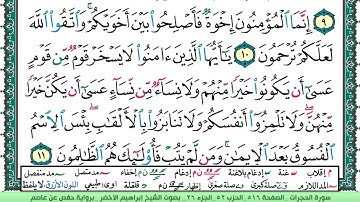 ٩ إِنَّمَا ٱلْمُؤْمِنُونَ إِخْوَةٌ فَأَصْلِحُوا۟ بَيْنَ أَخَوَيْكُمْ ۚ وَٱتَّقُوا۟ ٱللَّهَ
لَعَلَّكُمْ تُرْحَمُونَ ١٠ يَـٰٓأَيُّهَا ٱلَّذِينَ ءَامَنُوا۟ لَا يَسْخَرْ قَوْمٌ مِّن قَوْمٍ
عَسَىٰٓ أَن يَكُونُوا۟ خَيْرًا مِّنْهُمْ وَلَا نِسَآءٌ مِّن نِّسَآءٍ عَسَىٰٓ أَن يَكُنَّ خَيْرًا
مِّنْهُنَّ ۖ وَلَا تَلْمِزُوٓا۟ أَنفُسَكُمْ وَلَا تَنَابَزُوا۟ بِٱلْأَلْقَـٰبِ ۖ بِئْسَ ٱلِٱسْمُ
ٱلْفُسُوقُ بَعْدَ ٱلْإِيمَـٰنِ ۚ وَمَن لَّمْ يَتُبْ فَأُو۟لَـٰٓئِكَ هُمُ ٱلظَّـٰلِمُونَ ١١
سورة الحجرات الصفحة ٥١٦ الحزب ٥٢ الجزء ٢٦ بصوت الشيخ ابراهيم الأخضر برواية حفص عن عاصم